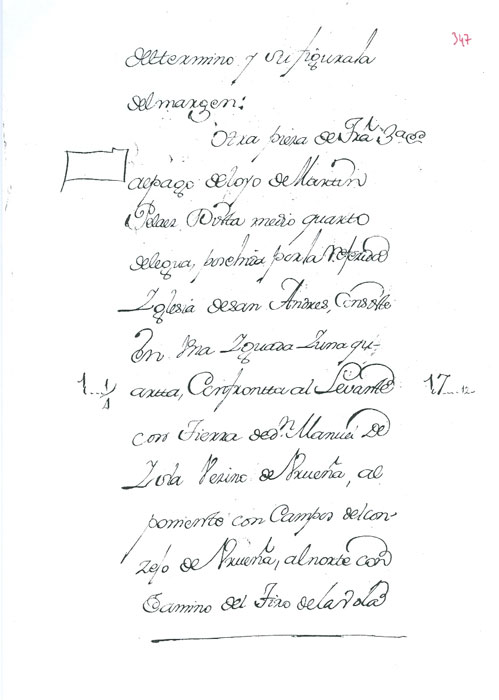 347
delttermino y su figura la
del margen:
Otra pieza de
al pago del oyo de Martin
Pelaez Distta medio quarto
de legua, posehida por la referida
Yglesia de san Andres, Consiste
en Una Yguada Y una qu-
1 1/4 artta, Confrontta al Levante 17 12
con Tierra de dn. Manuel De
Zola Vezino de Urueña, al
poniente con Campos del con-
zejo de Urueña, al norte con
Camino del Tiro de la Vola